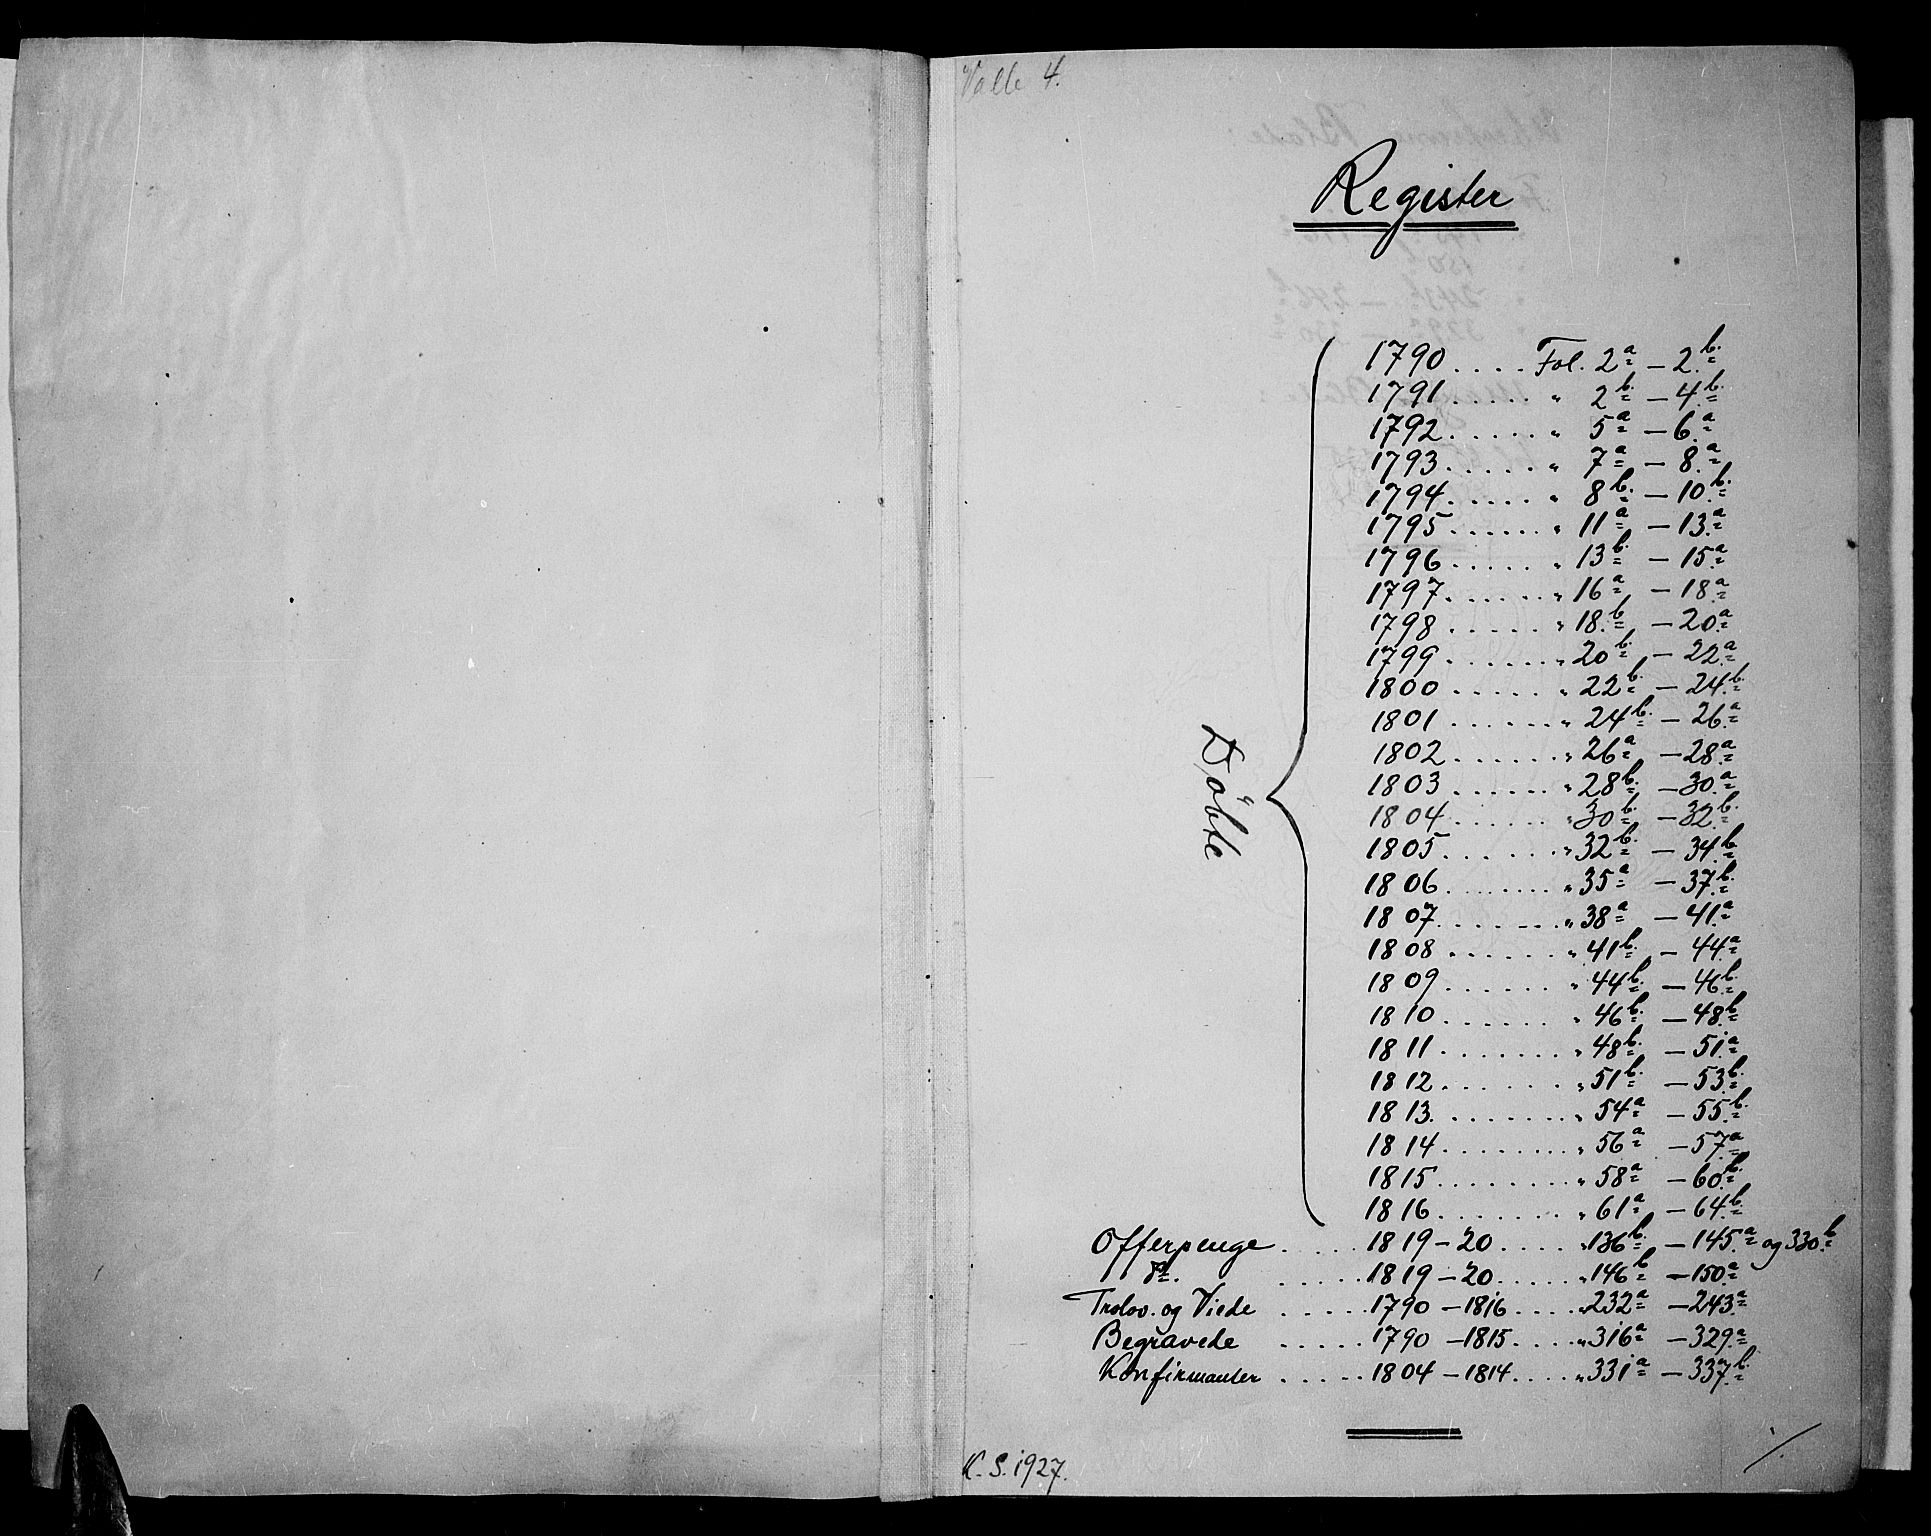 Valle 4.
Register
Døbte
1790 .... Fol. 2a – 2b.
1791 ..... " 2b. – 4b.
1792 ..... " 5a – 6.a
1793 ..... " 7a – 8.a
1794 ..... " 8b. – 10.b.
1795 ...... " 11a – 13.a
1796 ...... " 13b. – 15.a
1797 ...... " 16a – 18.a
1798 ...... " 18.b – 20.a
1799 ...... " 20b. – 22.a
1800 ...... " 22b. – 24.b.
1801 ...... " 24b. – 26.a
1802 ...... " 26a – 28.a
1803 ...... " 28b. – 30.a
1804 ...... " 30b. – 32.b.
1805 ...... " 32b. – 34.b.
1806 ....... " 35a – 37.b.
1807 ....... " 38a – 41.a
1808 ...... " 41b. – 44.a
1809 ...... " 44b. – 46.b.
1810 ...... " 46b. – 48.b.
1811 ....... " 48b. – 51.a
1812 ....... " 51b. – 53.b.
1813 ....... " 54a – 55.b.
1814 ....... " 56a – 57.a
1815 ........ " 58a – 60.b.
1816 ........ " 61a – 64.b.
Offerpenge ..... 1819–20 .... " 136b. – 145.a og 330.b
do. ..... 1819–20 ..... " 146b – 150.a
Trolov. og Viede ..... 1790–1816 .... " 232a – 243.a
Begravede ..... 1790–1815 .... " 316a – 329.a
Konfirmanter ..... 1804–1814 .... " 331a – 337.b.
K. S. 1927.